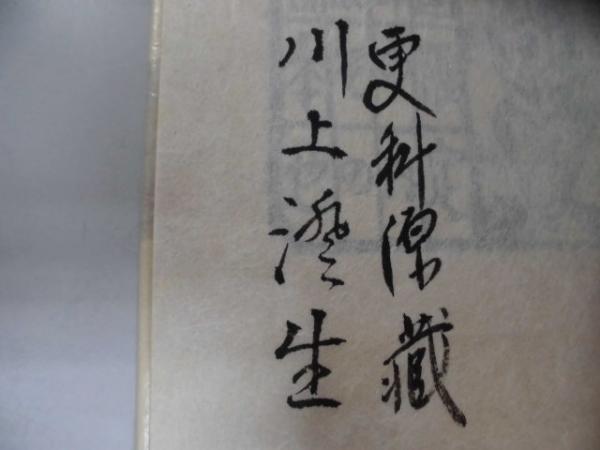 更科源藏
川上澄生